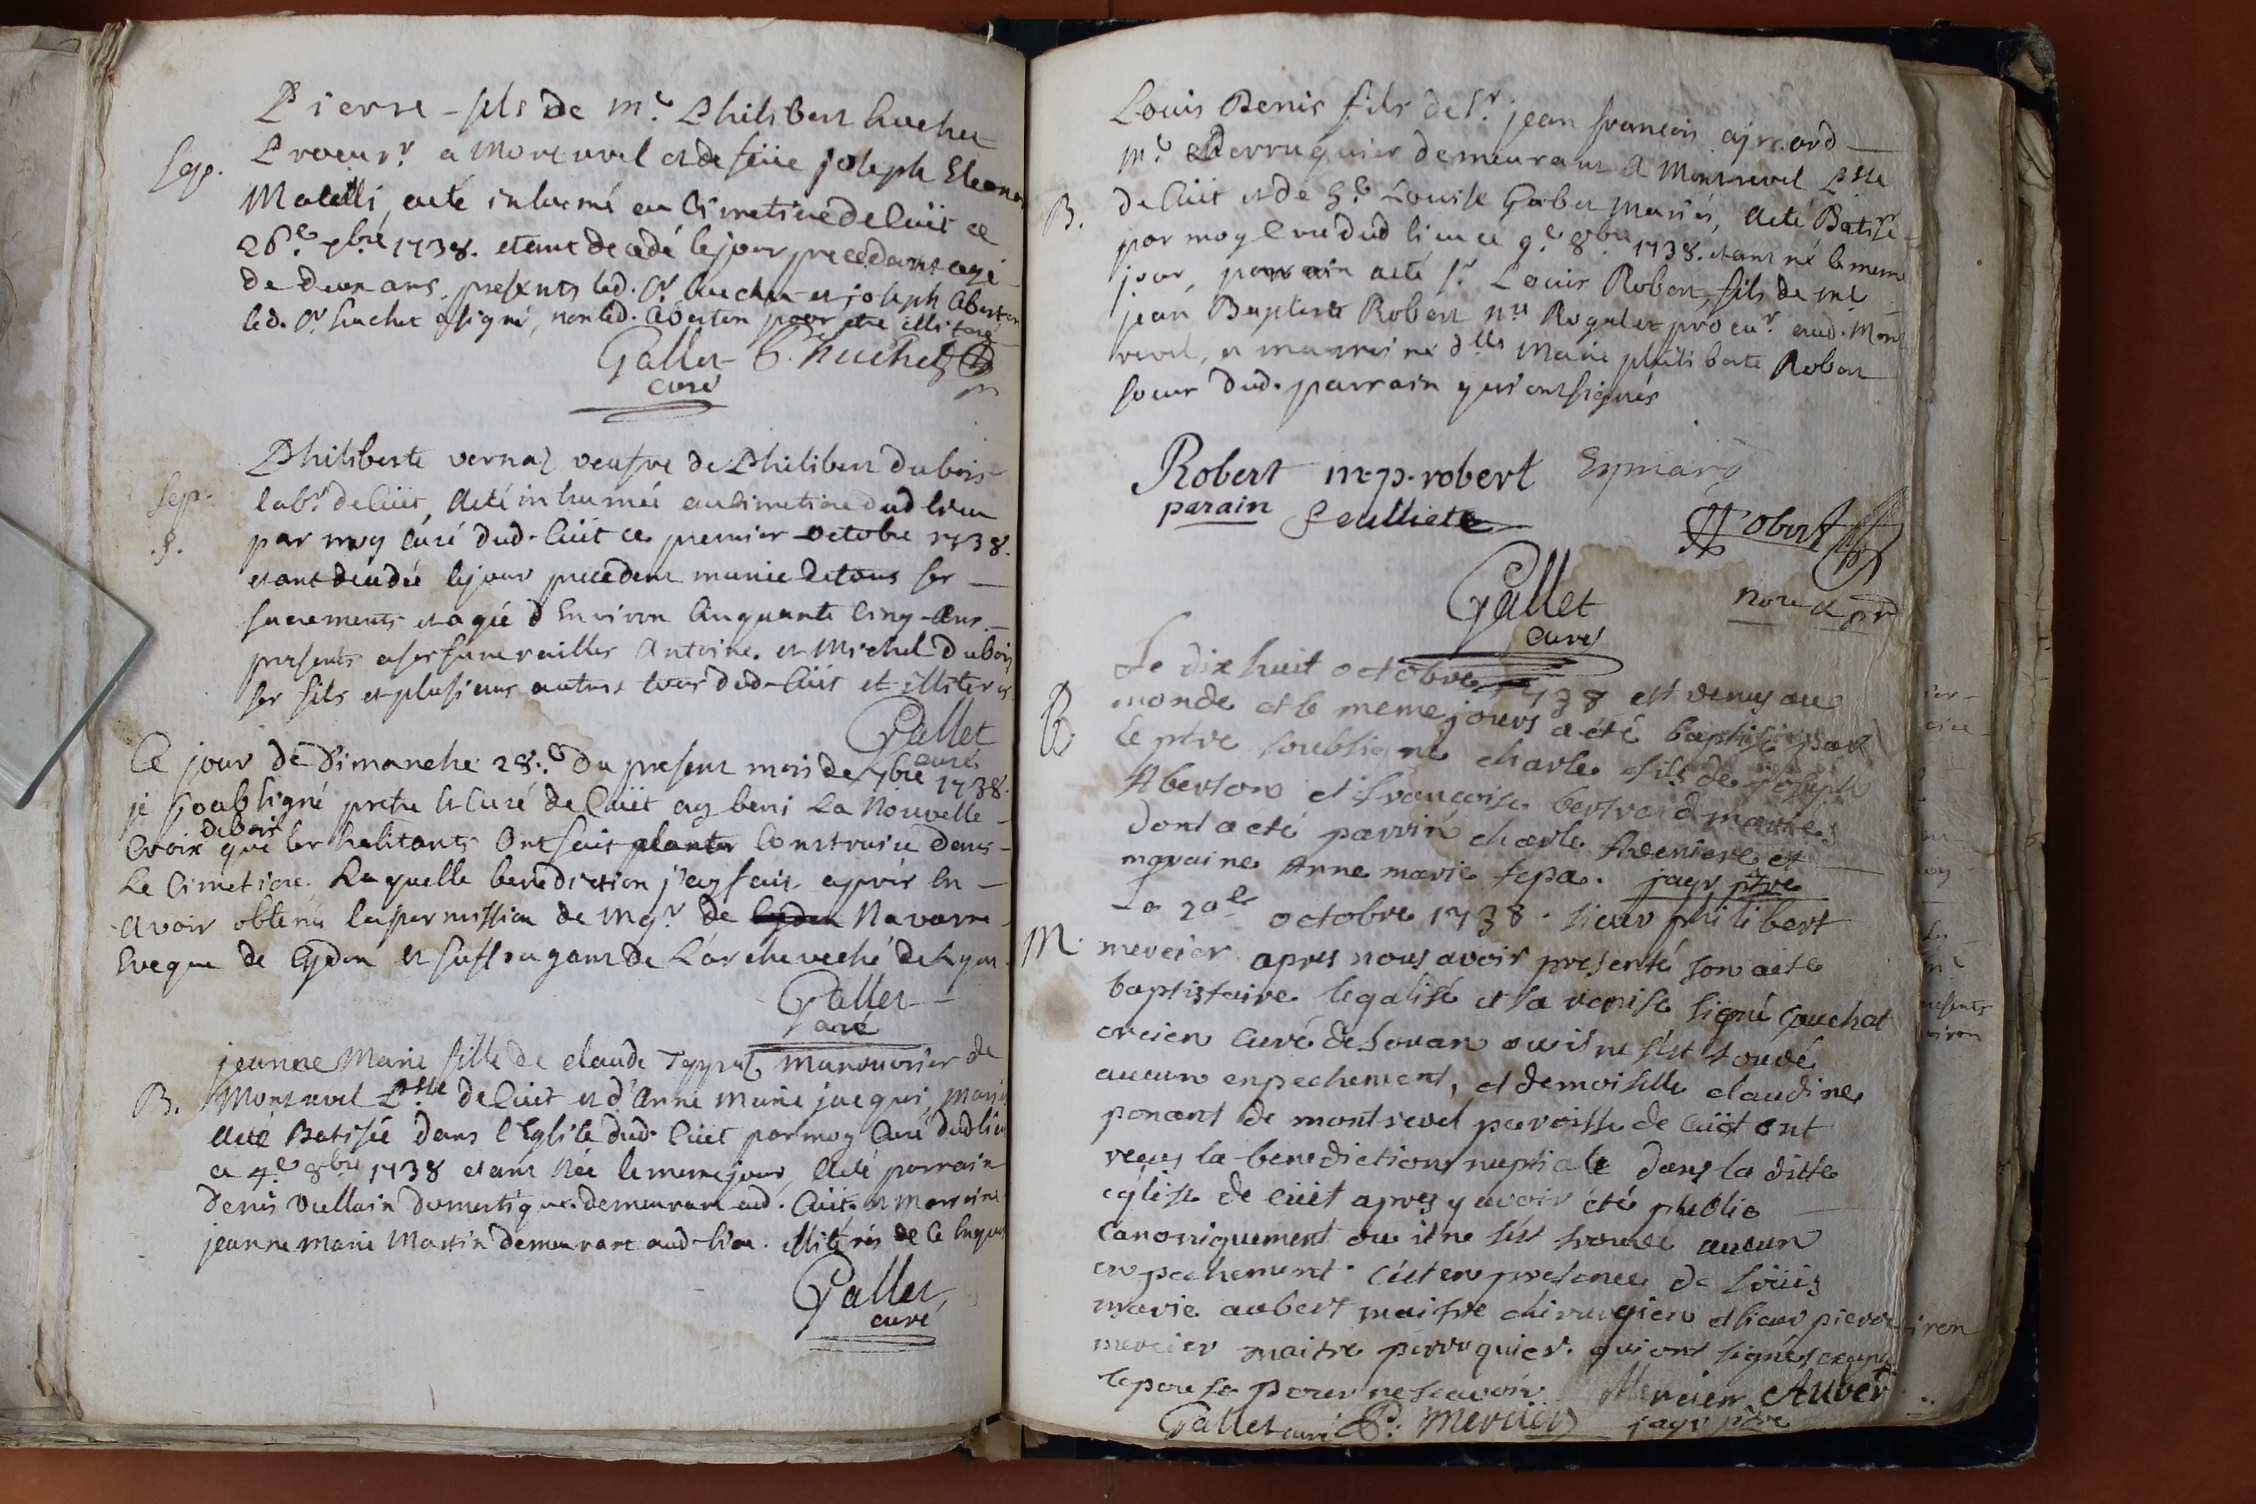 Pierre fils de m.e Philibert huchet
Sep.
Procur.r a Montrevel et de feüe joseph Eleonor
Matelli, a eté inhumé au Cimetiere de Cüit ce
26.e 7bre 1738. etant decedé le jour precedant agé
de deux ans, presents led. Sr huchet et joseph Aberton
led. Sr huchet a signé, non led. Aberton pour etre illiteré
Gallet P. huchet
curé
Philiberte vernaz veufve de Philibert dubois
Sep.
lab.r de Cüit, a eté inhumée au Cimetiere dud lieu
.§.
par moy Curé dud. Cüit ce premier octobre 1738.
etant decedée le jour precedent munie de tous ses
sacrements et agée d'Environ Cinquante Cinq Ans.
presents a ses funerailles Antoine. et Michel dubois
ses fils et plusieurs autres tous dud. Cüit et illiterés
Gallet
curé
Ce jour de Dimanche 28.e du present mois de 7bre 1738.
je soubsigné pretre et Curé de Cüit ay beni La Nouvelle
de bois
Croix que les habitants Ont fait planter Construire dans
Le Cimetiere. Laquelle benediction j'ay fait après En
avoir obtenu la permission de Mg.r de Sydon Navarre
Eveque de Sydon et suffragant de L'archeveché de Lyon.
Gallet
curé
jeanne Marie fille de claude manouvrier de
B.
Montrevel P.sse de Cüit et d'Anne marie jacqui, mariés
a eté Batisée dans l'Eglise dud. Cüit par moy Curé dud lieu
ce 4.e 8bre 1738 etant Née le meme jour, a eté parrain
denis Vullain domestique demeurant aud. Cüit. et marraine
jeanne marie Martin demeurant aud. lieu. illiterés de ce Enquis
Gallet,
curé
Louis Denis fils de Sr. jean francois
m.e Perruquier demeurant a Montrevel P.sse
B.
de Cüit et de Louise Gabet mariés, a eté Batisé
par moy Curé dud lieu ce 9.e 8bre 1738. etant né le meme
jour, parrain a eté Sr Louis Robert, fils de me
jean Baptiste Robert n.re Royal et procur.r aud. Mont
revel, et marraine d.lle Marie philiberte Robert
soeur dud. parrain qui ont signés
Robert m.p. robert Eymard
parain feulliete
Robert
Gallet
curé
nore et pr
Le dix huit octobre 1738 est venu au
B
monde et le meme jours a été baptisé par
le ptre soubsigné charle fils de joseph
Aberton et françoise bertrand mariés
dont a eté parrin charle et
maraine Anne marie fepa. jayr ptre
Le 20e octobre 1738. sieur philibert
M.
mercier apres nous avoir presenté son acte
baptistaire legalisé et sa remise signé Cauchat
ancien Curé de ou il ne s'est trouvé
aucun enpechement, et demoiselle claudine
ponant de montrevel paroisse de cüit ont
reçus la benediction nuptiale dans la ditte
eglise de Cüit apres y avoir été publié
Canoniquement ou il ne s'est trouvé aucun
enpechement. C'est en presence de loüis
marie aubert maitre chirurgien et sieur pierre
mercier maitre perruquier. qui ont signés excepté
l'epouse pour ne scavoir Mercier Auber
Gallet curé P. mercier jayr ptre